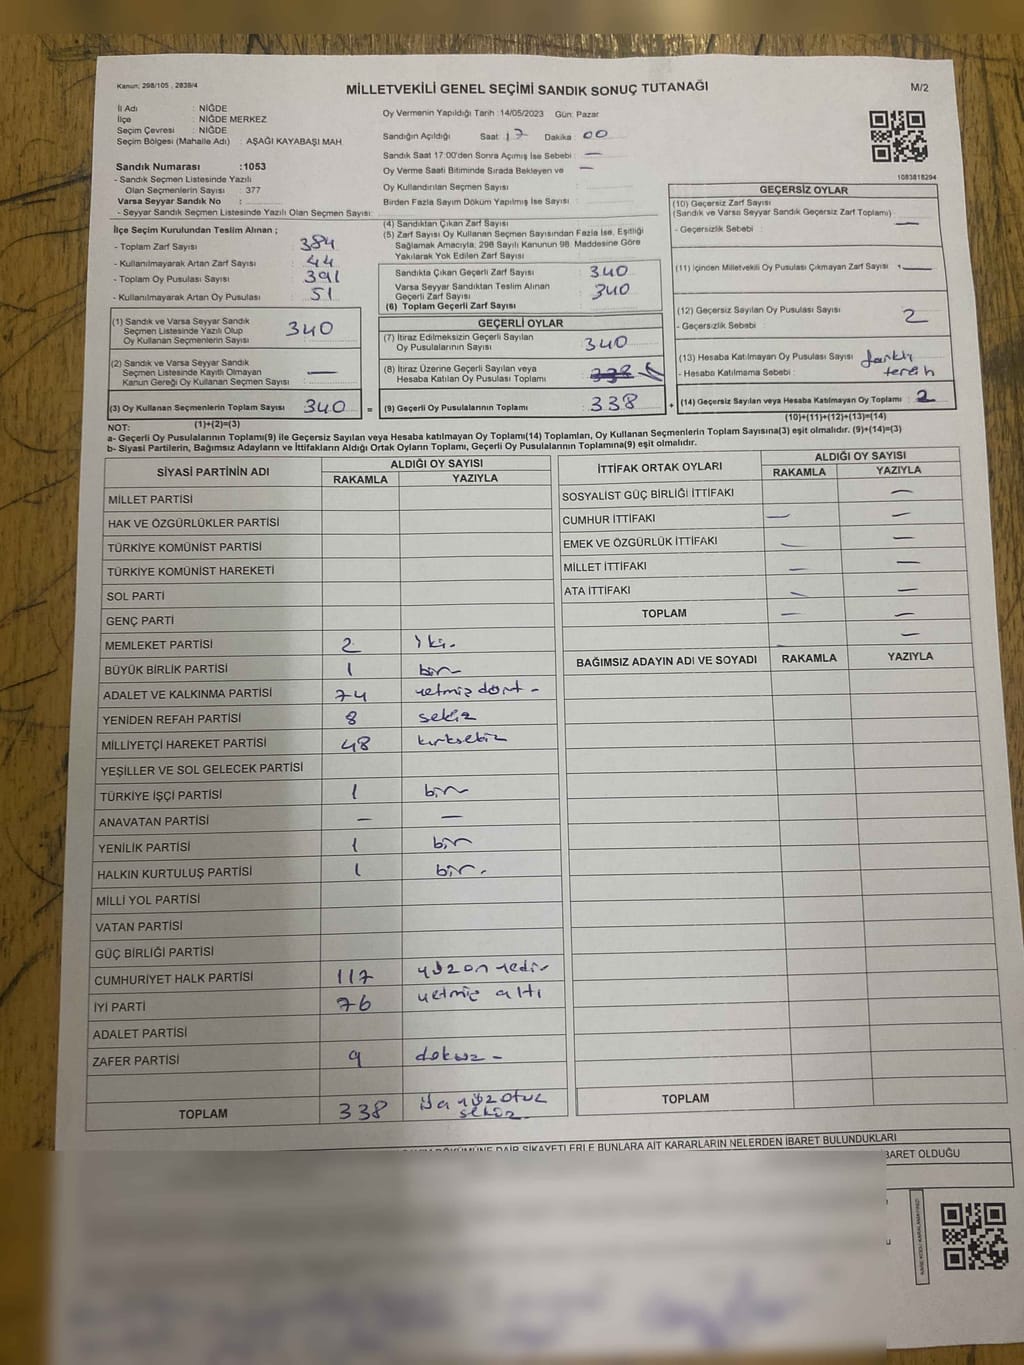 Kanun: 298/105 , 2839/4
MİLLETVEKİLİ GENEL SEÇİMİ SANDIK SONUÇ TUTANAĞI
M/2
İl Adı : NİĞDE
İlçe : NİĞDE MERKEZ
Seçim Çevresi : NİĞDE
Seçim Bölgesi (Mahalle Adı) : AŞAĞI KAYABAŞI MAH.
Oy Vermenin Yapıldığı Tarih : 14/05/2023 Gün: Pazar
Sandığın Açıldığı Saat: 17 Dakika: 00
Sandık Saat 17:00'den Sonra Açılmış İse Sebebi : —
Oy Verme Saati Bitiminde Sırada Bekleyen ve —
Oy Kullandırılan Seçmen Sayısı :
Birden Fazla Sayım Döküm Yapılmış İse Sayısı :
1083818294
Sandık Numarası : 1053
- Sandık Seçmen Listesinde Yazılı
Olan Seçmenlerin Sayısı : 377
Varsa Seyyar Sandık No :
- Seyyar Sandık Seçmen Listesinde Yazılı Olan Seçmen Sayısı:
İlçe Seçim Kurulundan Teslim Alınan ;
- Toplam Zarf Sayısı : 384
- Kullanılmayarak Artan Zarf Sayısı : 44
- Toplam Oy Pusulası Sayısı : 391
- Kullanılmayarak Artan Oy Pusulası : 51
(1) Sandık ve Varsa Seyyar Sandık
Seçmen Listesinde Yazılı Olup
Oy Kullanan Seçmenlerin Sayısı : 340
(2) Sandık ve Varsa Seyyar Sandık
Seçmen Listesinde Kayıtlı Olmayan
Kanun Gereği Oy Kullanan Seçmen Sayısı : —
(3) Oy Kullanan Seçmenlerin Toplam Sayısı : 340 =
(1)+(2)=(3)
(4) Sandıktan Çıkan Zarf Sayısı
(5) Zarf Sayısı Oy Kullanan Seçmen Sayısından Fazla İse, Eşitliği
Sağlamak Amacıyla, 298 Sayılı Kanunun 98. Maddesine Göre
Yakılarak Yok Edilen Zarf Sayısı :
Sandıkta Çıkan Geçerli Zarf Sayısı : 340
Varsa Seyyar Sandıktan Teslim Alınan
Geçerli Zarf Sayısı : 340
(6) Toplam Geçerli Zarf Sayısı
GEÇERLİ OYLAR
(7) İtiraz Edilmeksizin Geçerli Sayılan
Oy Pusulalarının Sayısı : 340
(8) İtiraz Üzerine Geçerli Sayılan veya
Hesaba Katılan Oy Pusulası Toplamı : 338
(9) Geçerli Oy Pusulalarının Toplamı : 338 +
GEÇERSİZ OYLAR
(10) Geçersiz Zarf Sayısı
(Sandık ve Varsa Seyyar Sandık Geçersiz Zarf Toplamı) :
- Geçersizlik Sebebi : —
(11) İçinden Milletvekili Oy Pusulası Çıkmayan Zarf Sayısı : —
(12) Geçersiz Sayılan Oy Pusulası Sayısı : 2
- Geçersizlik Sebebi :
(13) Hesaba Katılmayan Oy Pusulası Sayısı : farklı
- Hesaba Katılmama Sebebi : tercih
(14) Geçersiz Sayılan veya Hesaba Katılmayan Oy Toplamı : 2
(10)+(11)+(12)+(13)=(14)
NOT:
a- Geçerli Oy Pusulalarının Toplamı(9) ile Geçersiz Sayılan veya Hesaba katılmayan Oy Toplamı(14) Toplamları, Oy Kullanan Seçmenlerin Toplam Sayısına(3) eşit olmalıdır. (9)+(14)=(3)
b- Siyasi Partilerin, Bağımsız Adayların ve İttifakların Aldığı Ortak Oyların Toplamı, Geçerli Oy Pusulalarının Toplamına(9) eşit olmalıdır.
SİYASİ PARTİNİN ADI ALDIĞI OY SAYISI
RAKAMLA YAZIYLA
MİLLET PARTİSİ
HAK VE ÖZGÜRLÜKLER PARTİSİ
TÜRKİYE KOMÜNİST PARTİSİ
TÜRKİYE KOMÜNİST HAREKETİ
SOL PARTİ
GENÇ PARTİ
MEMLEKET PARTİSİ 2 iki.
BÜYÜK BİRLİK PARTİSİ 1 bir
ADALET VE KALKINMA PARTİSİ 74 yetmiş dört -
YENİDEN REFAH PARTİSİ 8 sekiz
MİLLİYETÇİ HAREKET PARTİSİ 48 kırksekiz
YEŞİLLER VE SOL GELECEK PARTİSİ
TÜRKİYE İŞÇİ PARTİSİ 1 bir
ANAVATAN PARTİSİ — —
YENİLİK PARTİSİ 1 bir
HALKIN KURTULUŞ PARTİSİ 1 bir.
MİLLİ YOL PARTİSİ
VATAN PARTİSİ
GÜÇ BİRLİĞİ PARTİSİ
CUMHURİYET HALK PARTİSİ 117 yüz on yedi
İYİ PARTİ 76 yetmiş altı
ADALET PARTİSİ
ZAFER PARTİSİ 9 dokuz -
TOPLAM 338 üç yüz otuz
sekiz
İTTİFAK ORTAK OYLARI ALDIĞI OY SAYISI
RAKAMLA YAZIYLA
SOSYALİST GÜÇ BİRLİĞİ İTTİFAKI —
CUMHUR İTTİFAKI — —
EMEK VE ÖZGÜRLÜK İTTİFAKI — —
MİLLET İTTİFAKI — —
ATA İTTİFAKI — —
TOPLAM — —
—
BAĞIMSIZ ADAYIN ADI VE SOYADI RAKAMLA YAZIYLA
TOPLAM
DÖKÜMÜNE DAİR ŞİKAYETLERLE BUNLARA AİT KARARLARIN NELERDEN İBARET BULUNDUKLARI
BARET OLDUĞU